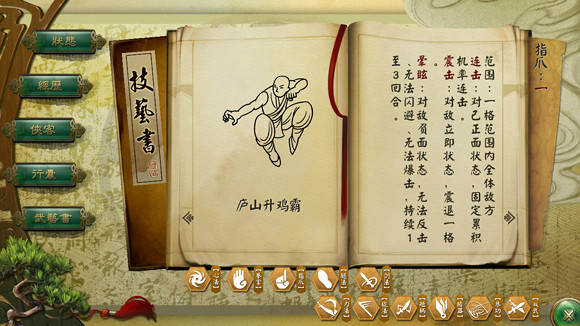 狀態
經歷
俠客
行囊
武藝書
技藝書
庐山升鸡霸
指爪：一
范围：一格范围内全体敌方
连击：对己正面状态，固定累积
机率连击。
震击：对敌立即状态，震退一格
。
晕眩：对敌负面状态，无法反击
、无法闪避、无法爆击，持续1
至3回合。